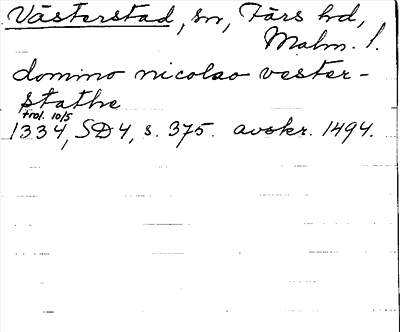 Västerstad, sn, Färs hd,
Malm. l.
domino nicolao vester-
stathe
trol. 10/5
1334, SD4, s. 375. avskr. 1494.